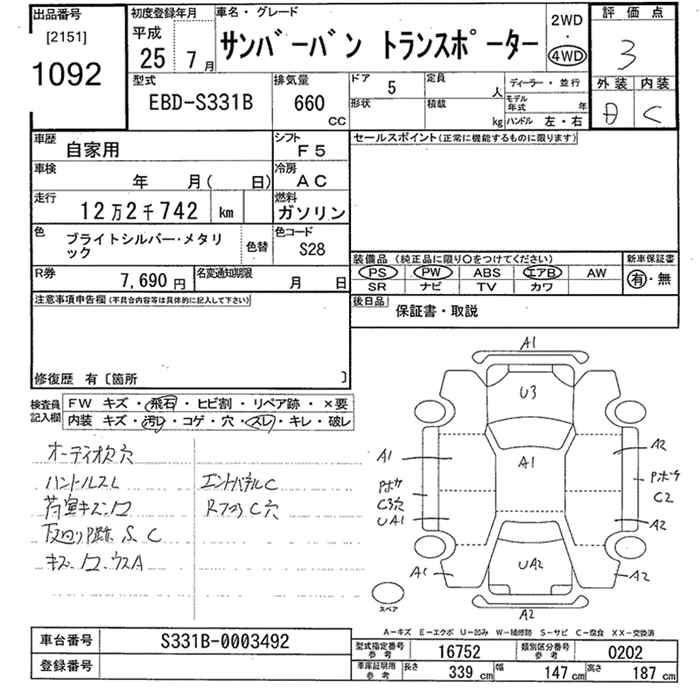 出品番号
[2151]
1092
初度登録年月
平成
25 7月
車名・グレード
サンバーバン トランスポーター
2WD
・
4WD
評価点
3
外装 内装
C
型式
EBD-S331B
排気量
660
CC
ドア
5
定員
人
形状
積載
kg
ディーラー・並行
モデル年式
年
ハンドル 左・右
車歴
自家用
シフト
F5
車検
年 月( 日)
冷房
AC
走行
12万2千742 km
燃料
ガソリン
色
ブライトシルバー・メタリ
ック
色替
色コード
S28
R券
7,690 円
名変通知期限
月 日
セールスポイント(正常に機能するものに限ります)
装備品 (純正品に限り〇をつけてください)
PS PW ABS エアB AW
SR ナビ TV カワ
新車保証書
有・無
後日品
保証書・取説
注意事項申告欄(不具合内容等は具体的に記入して下さい)
修復歴 有〔箇所 〕
検査員
記入欄
FW キズ・飛石・ヒビ割・リペア跡・×要
内装 キズ・汚レ・コゲ・穴・スレ・キレ・破レ
オーディオ穴
ハンドルスレ
荷室キズ・凹
下回り S、C
キズ・凹・ウスA
C
C穴
A1
U3
A1
A1
A2
C2
UA1
A2
A1
UA2
A2
A2
スペア
A−キズ E−エクボ U−凹み W−補修跡 S−サビ C−腐食 XX−交換済
車台番号
S331B-0003492
登録番号
型式指定番号
参考
16752
類別区分番号
参考
0202
車庫証明用
参考
長さ
339 cm
幅
147 cm
高さ
187 cm